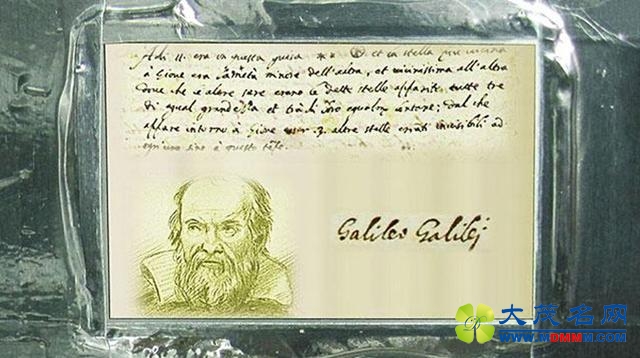 Adi 11. era in questa guisa ** et la stella più vicina
à Giove era la metà minore dell'altra, et vicinissima all'altra
dove che le altre sere erano le dette stelle apparite tutte tre
di equal grandezza et trà di loro equalm. lontane; dal che
appare intorno à Giove esser .3. altre stelle erranti invisibili ad
ogn'uno sino à questo
Galileo Galilei
大茂名网